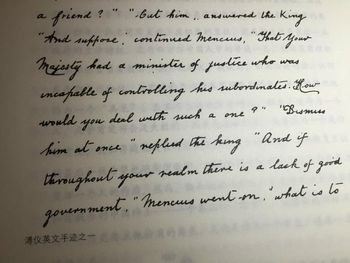 a friend?" "Cut him", answered the King
"And suppose", continued Mencius, "That Your
Majesty had a minister of justice who was
incapable of controlling his subordinates. How
would you deal with such a one?" "Dismiss
him at once" replied the king "And if
throughout your realm there is a lack of good
government," Mencius went on, "what is to
溥仪英文手迹之一